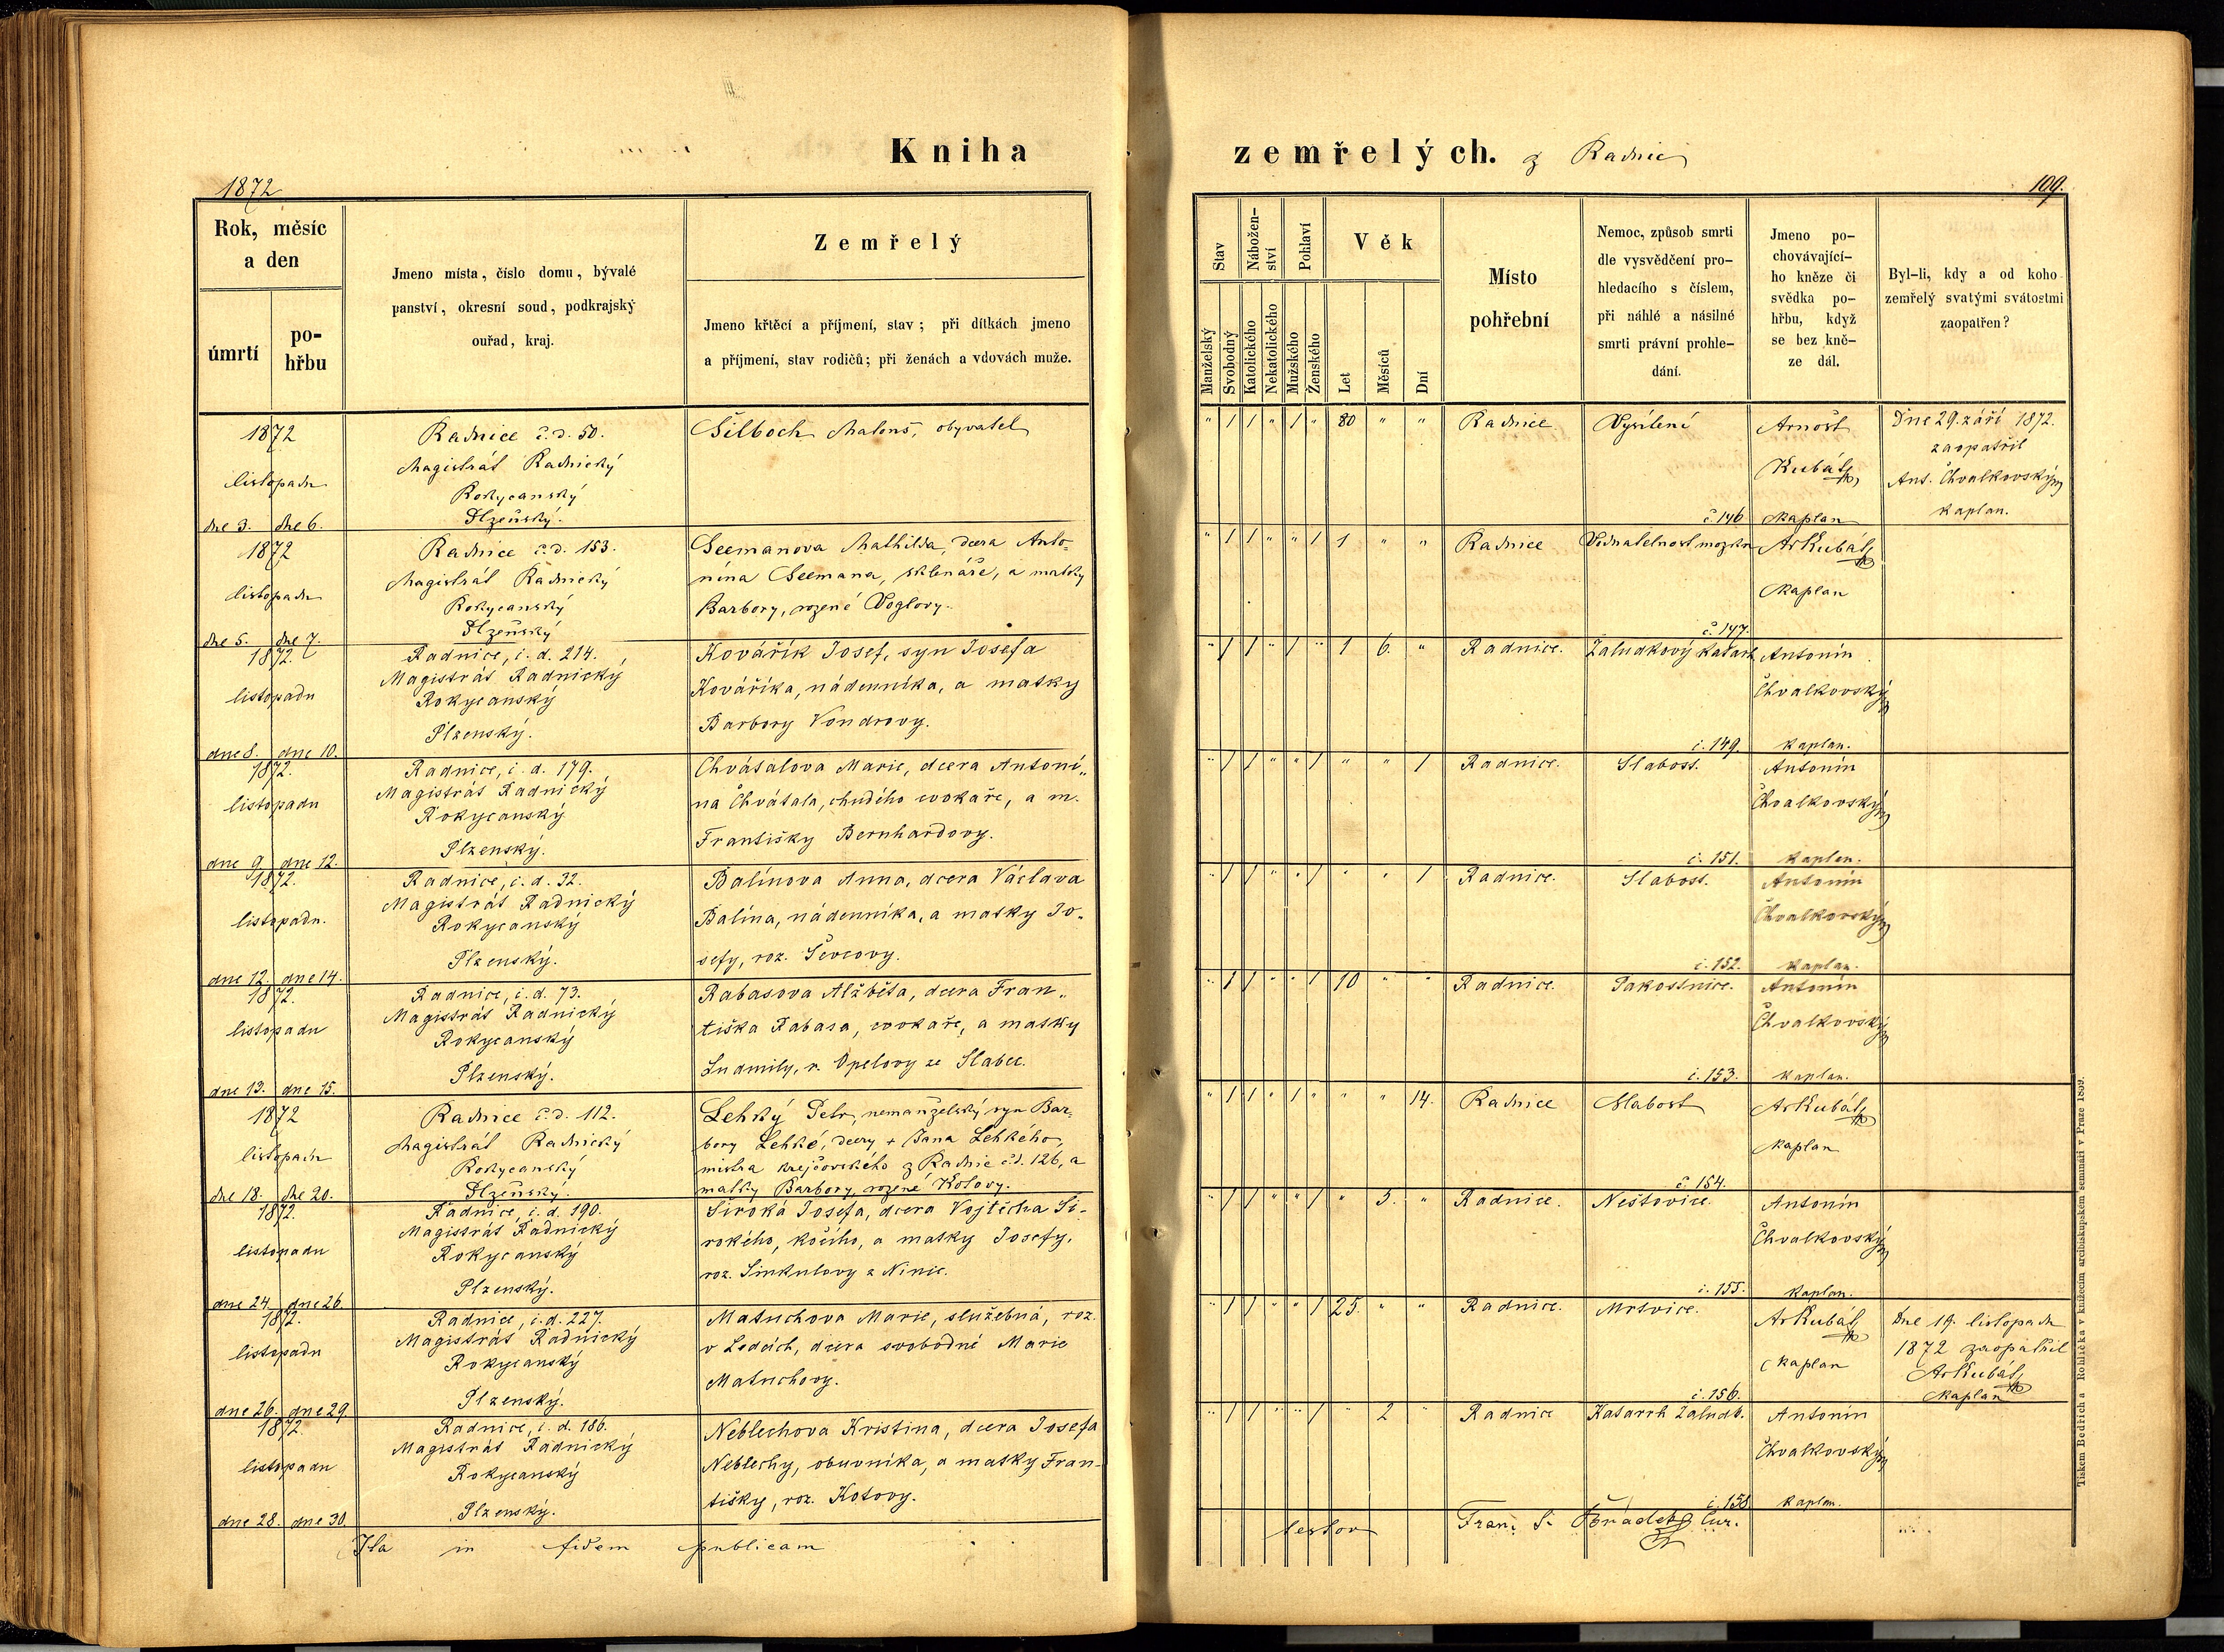 Kniha
zemřelých. z Radnic
1872
109.
Rok, měsíc
a den
úmrtí
po-
hřbu
Jmeno místa, číslo domu, bývalé
panství, okresní soud, podkrajský
ouřad, kraj.
Zemřelý
Jmeno křtěcí a příjmení, stav; při dítkách jmeno
a příjmení, stav rodičů; při ženách a vdovách muže.
Stav
Manželský
Svobodný
Nábožen-
ství
Katolického
Nekatolického
Pohlaví
Mužského
Ženského
Věk
Let
Měsíců
Dní
Místo
pohřební
Nemoc, způsob smrti
dle vysvědčení pro-
hledacího s číslem,
při náhlé a násilné
smrti právní prohle-
dání.
Jmeno po-
chovávající-
ho kněze či
svědka po-
hřbu, když
se bez kně-
ze dál.
Byl-li, kdy a od koho
zemřelý svatými svátostmi
zaopatřen?
1872
listopadu
dne 3. dne 6.
Radnice č.d. 50.
Magistrát Radnický
Rokycanský
Plzeňský.
Šilboch, obyvatel
" 1 1 " 1 " 80 " "
Radnice
Vysílení
č. 146
Arnošt
Kubát
kaplan
Dne 29. září 1872.
zaopatřil
Ant. Chvalkovský
kaplan.
1872
listopadu
dne 5. dne 7.
Radnice č.d. 153.
Magistrát Radnický
Rokycanský
Plzeňský
Seemanova Mathilda, dcera Anto-
nína Seemana, sklenáře, a matky
Barbory, rozené Voglovy.
" 1 1 " " 1 1 " "
Radnice
Vodnatelnost mozku
č. 147.
Ar Kubát
kaplan
1872.
listopadu
dne 8. dne 10.
Radnice, č. d. 214.
Magistrát Radnický
Rokycanský
Plzenský.
Kovářík Josef, syn Josefa
Kováříka, nádenníka, a matky
Barbory Vondrovy.
" 1 1 " 1 " 1 6. "
Radnice.
Žaludkový katarh
č. 149.
Antonín
Chvalkovský
kaplan.
1872.
listopadu
dne 9. dne 12.
Radnice, č. d. 179.
Magistrát Radnický
Rokycanský
Plzenský.
Chvátalova Marie, dcera Antoní-
na Chvátala, chudého cvokaře, a m.
Františky Bernhardovy.
" 1 1 " " 1 " " 1
Radnice.
Slabost.
č. 151.
Antonín
Chvalkovský
kaplan.
1872.
listopadu.
dne 12. dne 14.
Radnice, č. d. 32.
Magistrát Radnický
Rokycanský
Plzenský.
Balínova Anna, dcera Václava
Balína, nádenníka, a matky Jo-
sefy, roz. Ševcovy.
" 1 1 " " 1 " " 1
Radnice.
Slabost.
č. 152.
Antonín
Chvalkovský
kaplan.
1872.
listopadu
dne 13. dne 15.
Radnice, č. d. 73.
Magistrát Radnický
Rokycanský
Plzenský.
Rabasova Alžběta, dcera Fran-
tiška Rabasa, cvokaře, a matky
Ludmily, r. Opelovy ze Slabec.
" 1 1 " " 1 10 " "
Radnice.
Pakostnice.
č. 153.
Antonín
Chvalkovský
kaplan.
1872
listopadu
dne 18. dne 20.
Radnice č.d. 112.
Magistrát Radnický
Rokycanský
Plzeňský.
Lehký Petr, nemanželský syn Bar-
bory Lehké, dcery + Jana Lehkého,
mistra krejčovského z Radnic čd. 126, a
matky Barbory, rozené Kotovy.
" 1 1 " 1 " " " 14.
Radnice
Slabost
č. 154.
Ar Kubát
kaplan
1872.
listopadu
dne 24. dne 26.
Radnice, č. d. 190.
Magistrát Radnický
Rokycanský
Plzenský.
Široká Josefa, dcera Vojtěcha Ši-
rokého, kočího, a matky Josefy,
roz. Šimkulovy z Ninic.
" 1 1 " " 1 " 3. "
Radnice.
Neštovice.
č. 155.
Antonín
Chvalkovský
kaplan.
1872.
listopadu
dne 26. dne 29.
Radnice, č. d. 227.
Magistrát Radnický
Rokycanský
Plzenský.
Matuchova Marie, služebná, roz.
v Ledcích, dcera svobodné Marie
Matuchovy.
" 1 1 " " 1 25. " "
Radnice.
Mrtvice.
č. 156.
Ar Kubát
kaplan
Dne 19. listopadu
1872 zaopatřil
Ar Kubát
kaplan
1872.
listopadu
dne 28. dne 30.
Radnice, č. d. 186.
Magistrát Radnický
Rokycanský
Plzenský.
Neblechova Kristina, dcera Josefa
Neblechy, obuvníka, a matky Fran-
tišky, roz. Kotovy.
" 1 1 " " 1 " 2 "
Radnice
Katarrh žaludk.
č. 158
Antonín
Chvalkovský
kaplan.
Ita in fidem publicam
testor Franz S. Cur.
Tiskem Bedřicha Rohlíčka v knížecím arcibiskupském semináři v Praze 1859.